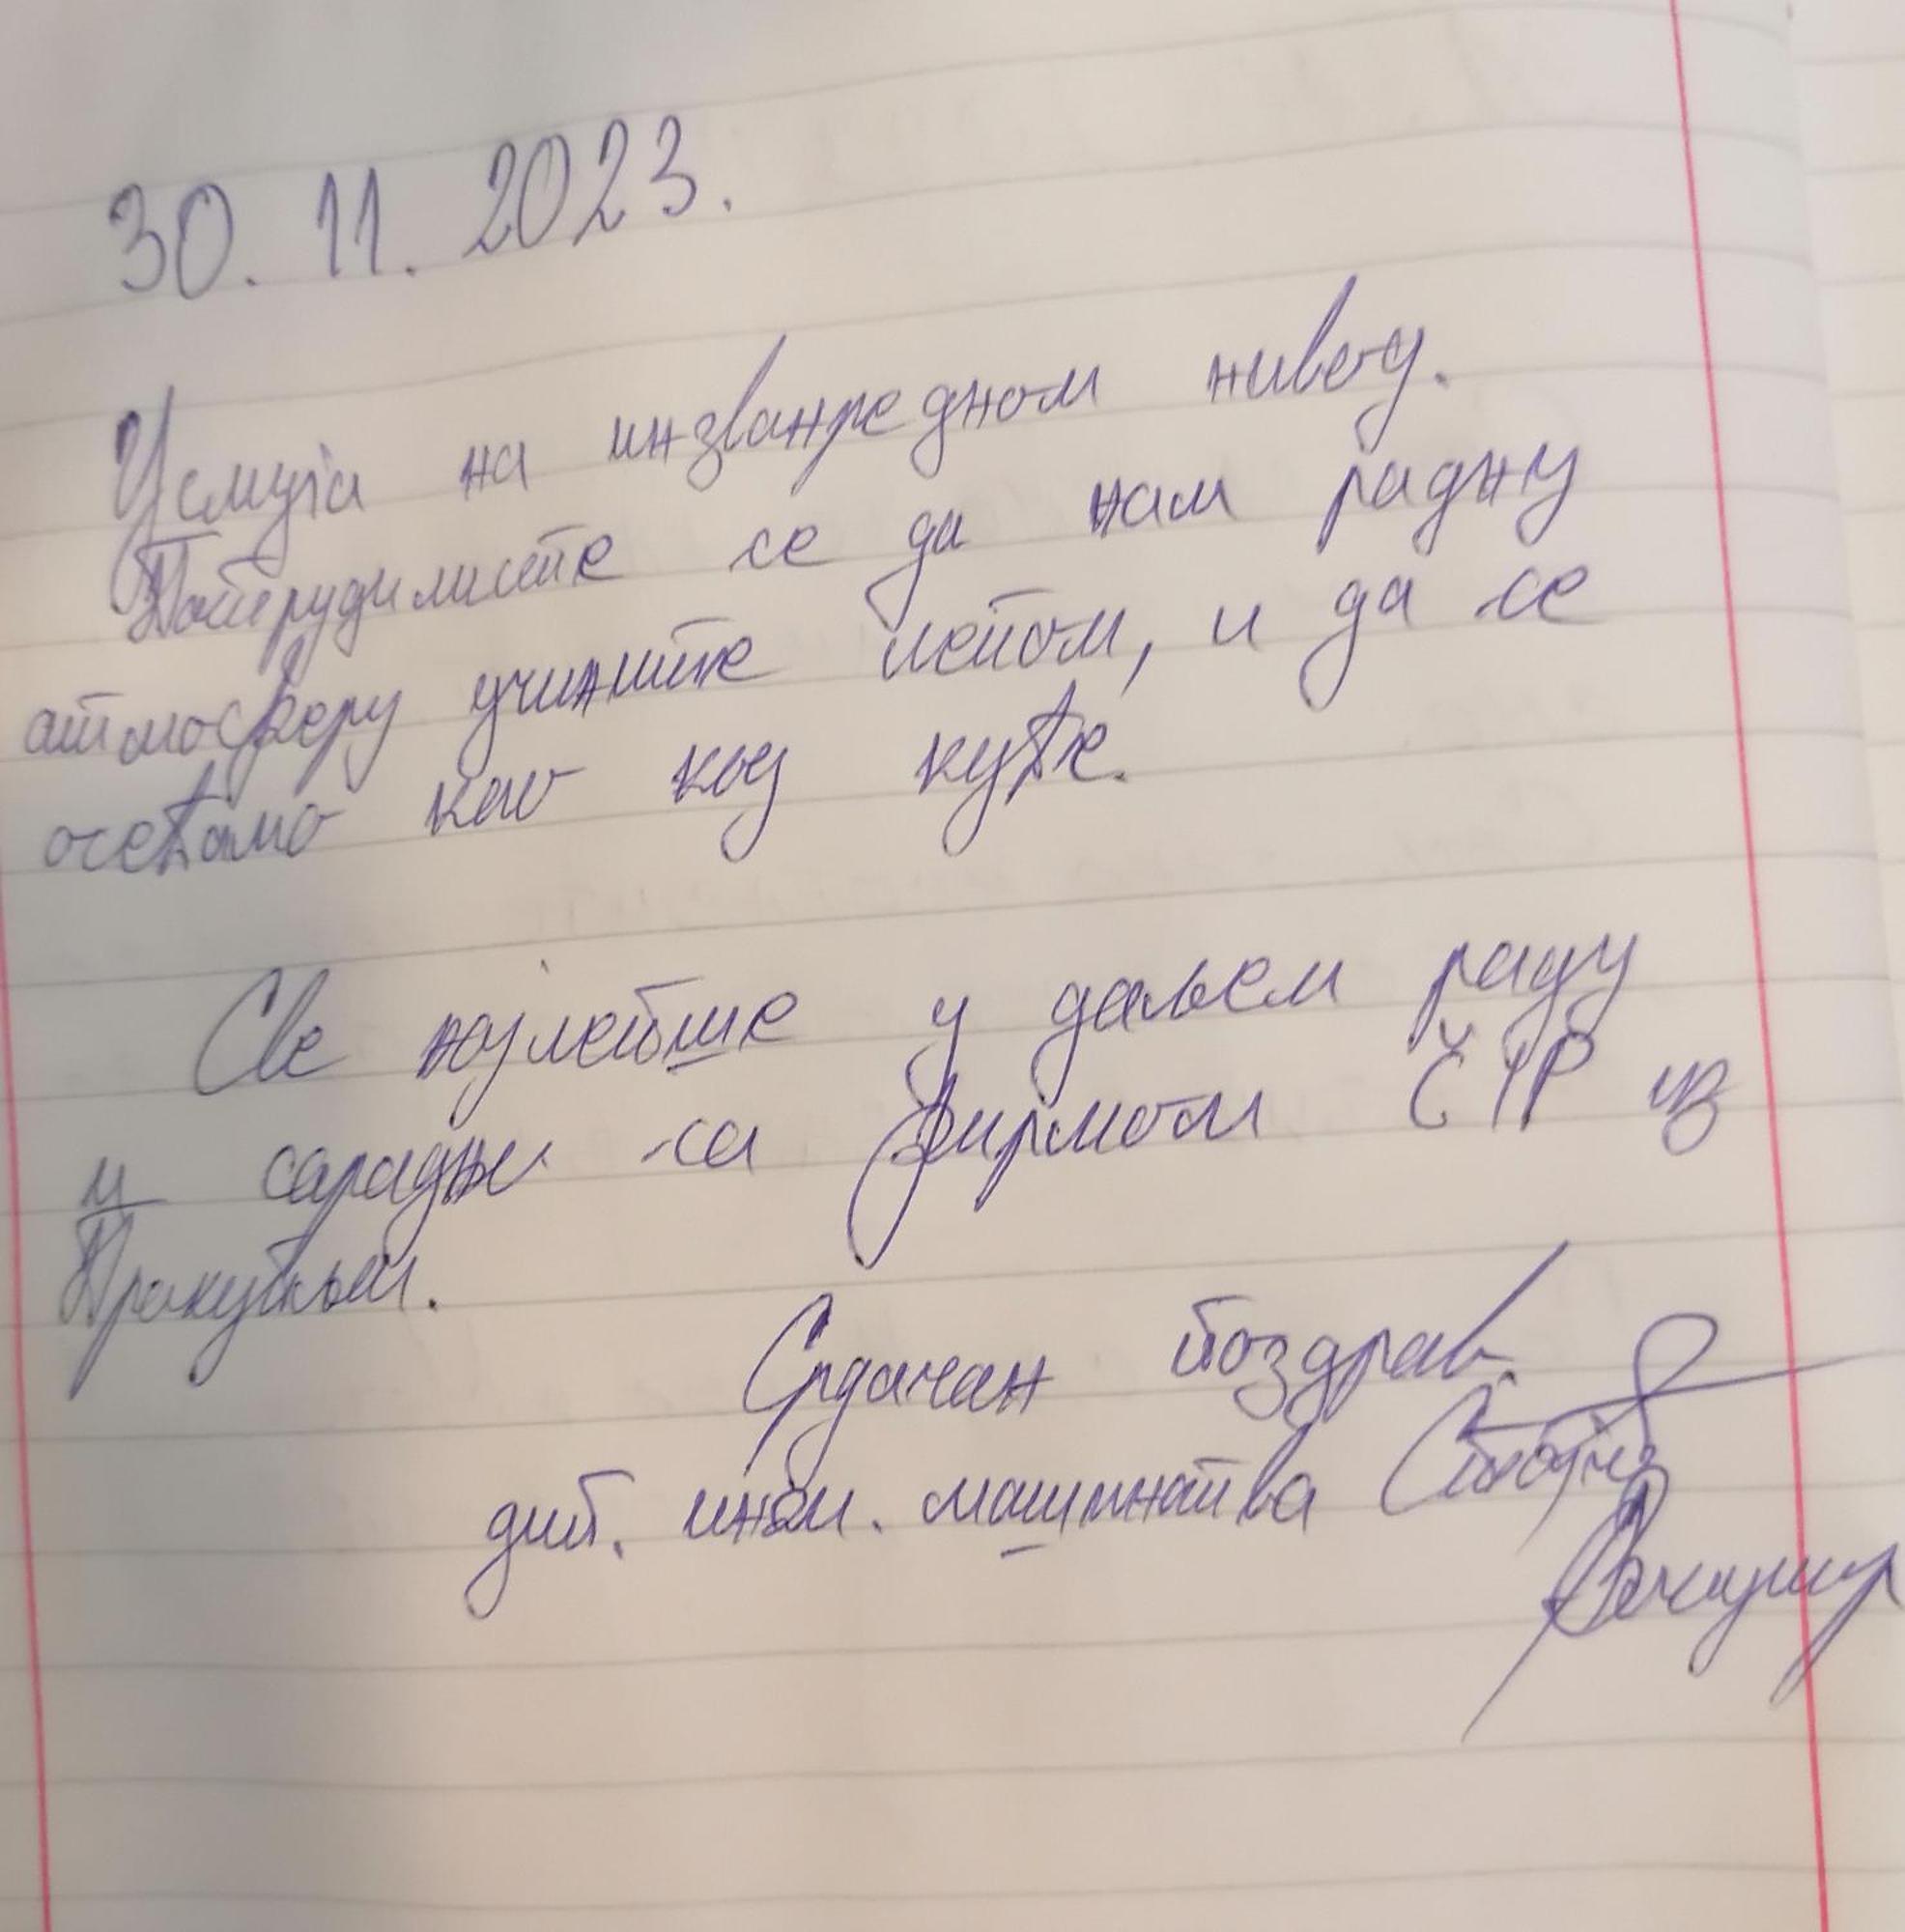 30. 11. 2023.
Услуга на инзванредном нивоу.
Потрудилисте се да нам радну
атмосферу учините лепом, и да се
осећамо као код куће.
Све најлепше у даљем раду
и сарадњи са фирмом ČTP из
Прокупља.
Срдачан поздрав.
дип. инж. машинства